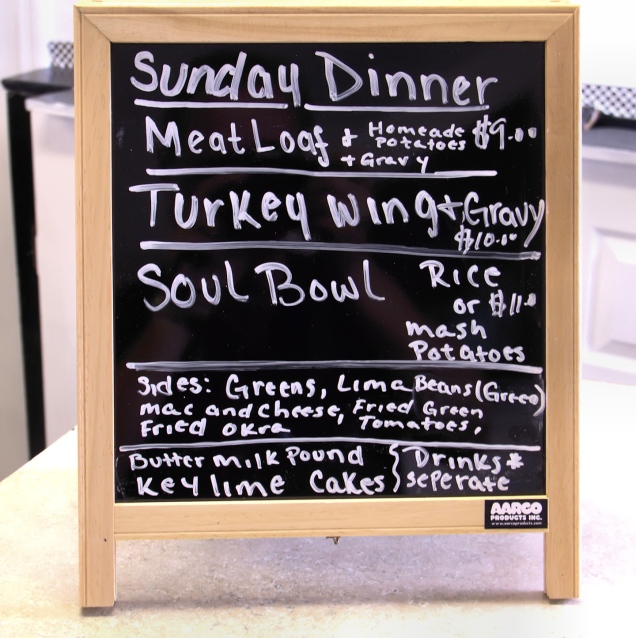 Sunday Dinner
Meat Loaf + Homeade Potatoes + Gravy $9.00
Turkey Wing + Gravy
$10.00
Soul Bowl Rice
or $11.0
mash
Potatoes
Sides: Greens, Lima Beans (Green)
mac and Cheese, Fried Green
Fried Okra Tomatoes,
Butter milk Pound { Drinks *
Key lime Cakes } seperate
AARCO
PRODUCTS INC.
www.aarcoproducts.com